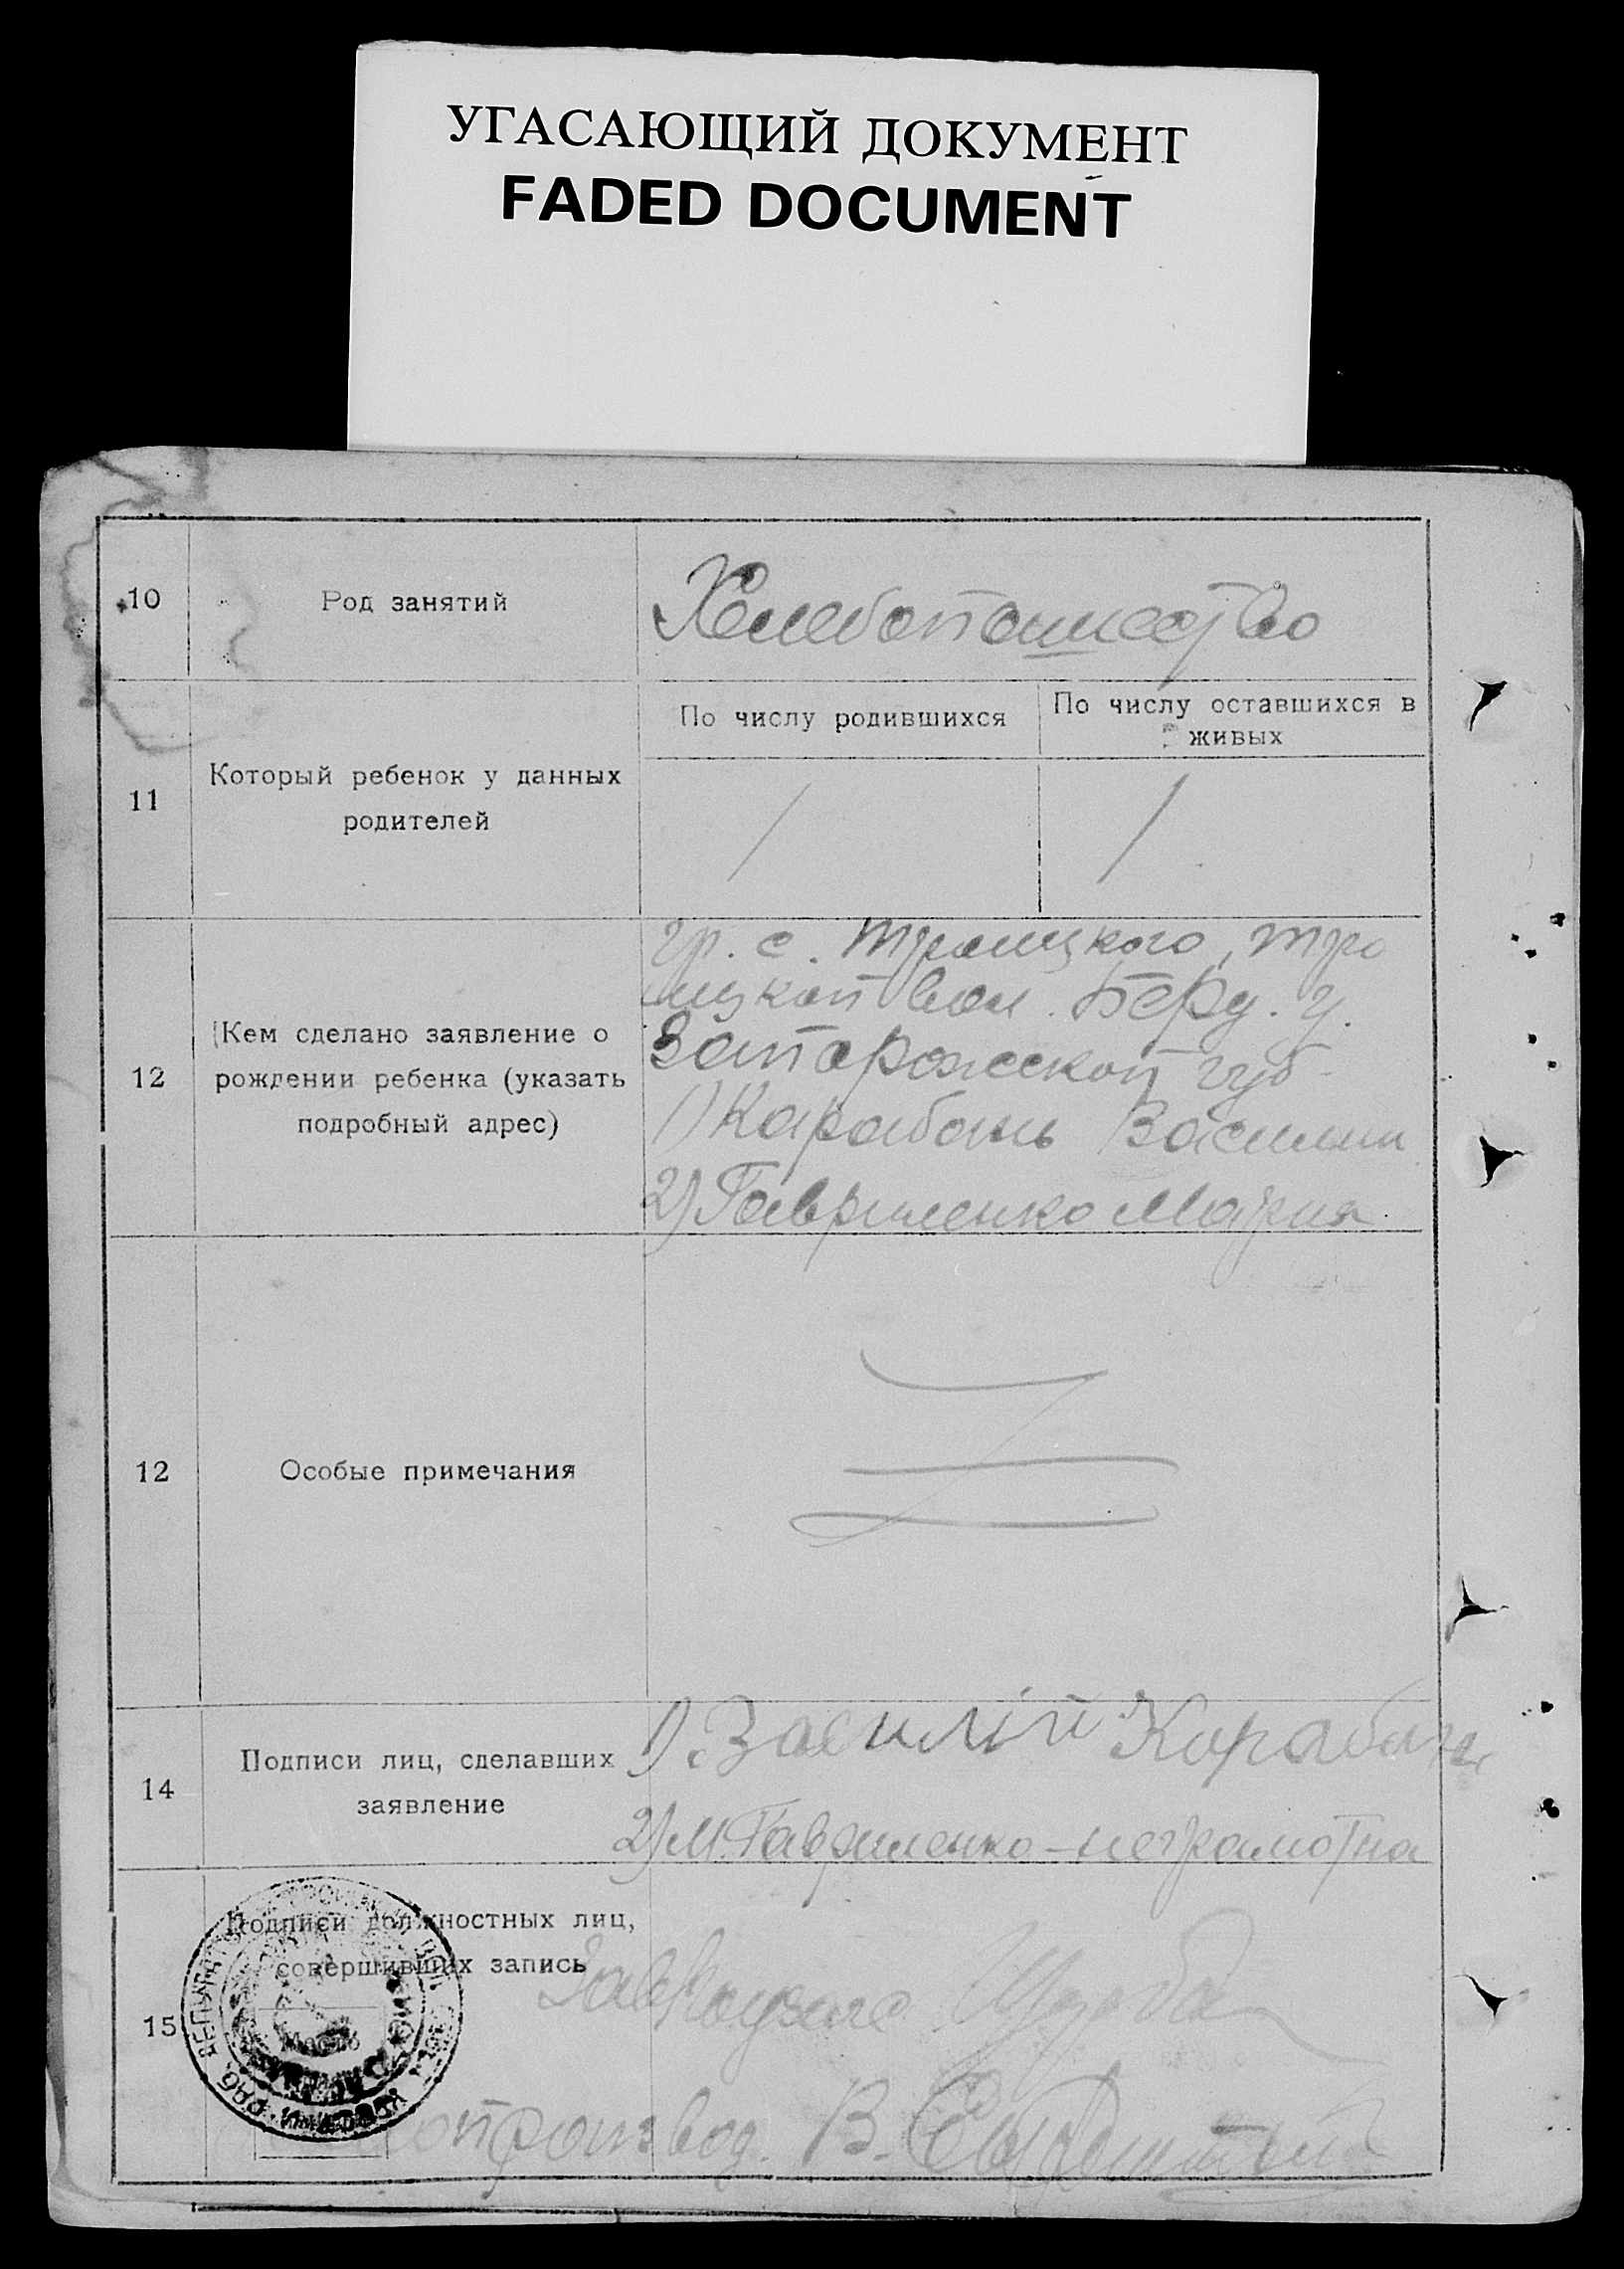 УГАСАЮЩИЙ ДОКУМЕНТ
FADED DOCUMENT
10
Род занятий
Хлебопашество
11
Который ребенок у данных
родителей
По числу родившихся
1
По числу оставшихся в
живых
1
12
Кем сделано заявление о
рождении ребенка (указать
подробный адрес)
гр. с. Троицкого, Тро
ицкой вол. Берд. у.
Запорожской губ.
1) Карабань Василий
2) Гавриленко Мария
12
Особые примечания
14
Подписи лиц, сделавших
заявление
1). Василій Карабань
2) М. Гавриленко - неграмотна
15
Подписи должностных лиц,
совершивших запись
Место
В.